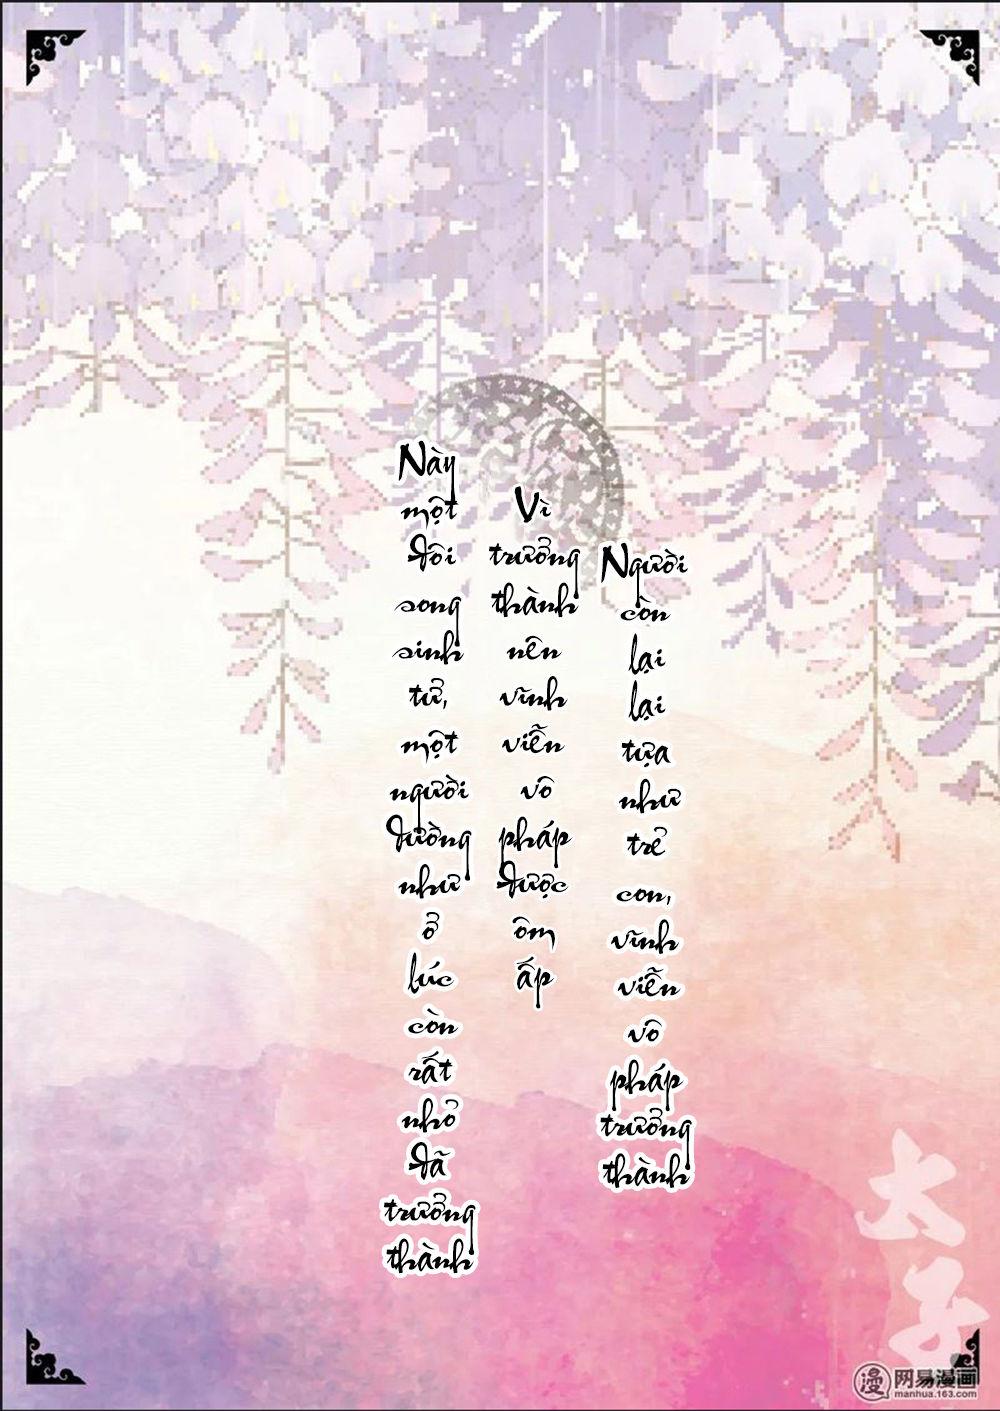 Này một đôi song sinh tử, một người đường như ở lúc còn rất nhỏ đã trưởng thành
Vì trưởng thành nên vĩnh viễn vô pháp được ôm ấp
Người còn lại lại tựa như trẻ con, vĩnh viễn vô pháp trưởng thành
太子
漫 网易漫画
manhua.163.com